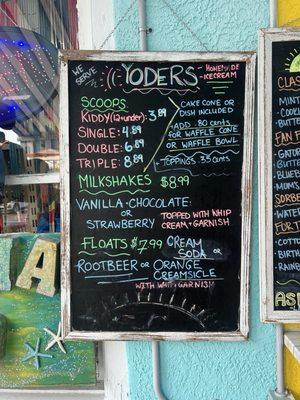 WE SERVE YODERS HOMEMADE ICECREAM
SCOOPS:
KIDDY (12+UNDER): 3.89
SINGLE: 4.89
DOUBLE: 6.89
TRIPLE: 8.89
CAKE CONE OR
DISH INCLUDED
ADD .80 CENTS
FOR WAFFLE CONE
OR WAFFLE BOWL
TOPPINGS 35 CENTS
MILKSHAKES $8.99
VANILLA-CHOCOLATE:
OR
STRAWBERRY
TOPPED WITH WHIP
CREAM + GARNISH
FLOATS $7.99
CREAM
SODA OR
ROOTBEER OR ORANGE
CREAMSICLE
WITH WHIP + GARNISH
CLASS
MINT
COOK
BUTT
FAN F
GATOR
BUTTE
BLUEB
MUMS
SORBE
WATER
FOR T
COTT
BIRTH
RAINB
ASK